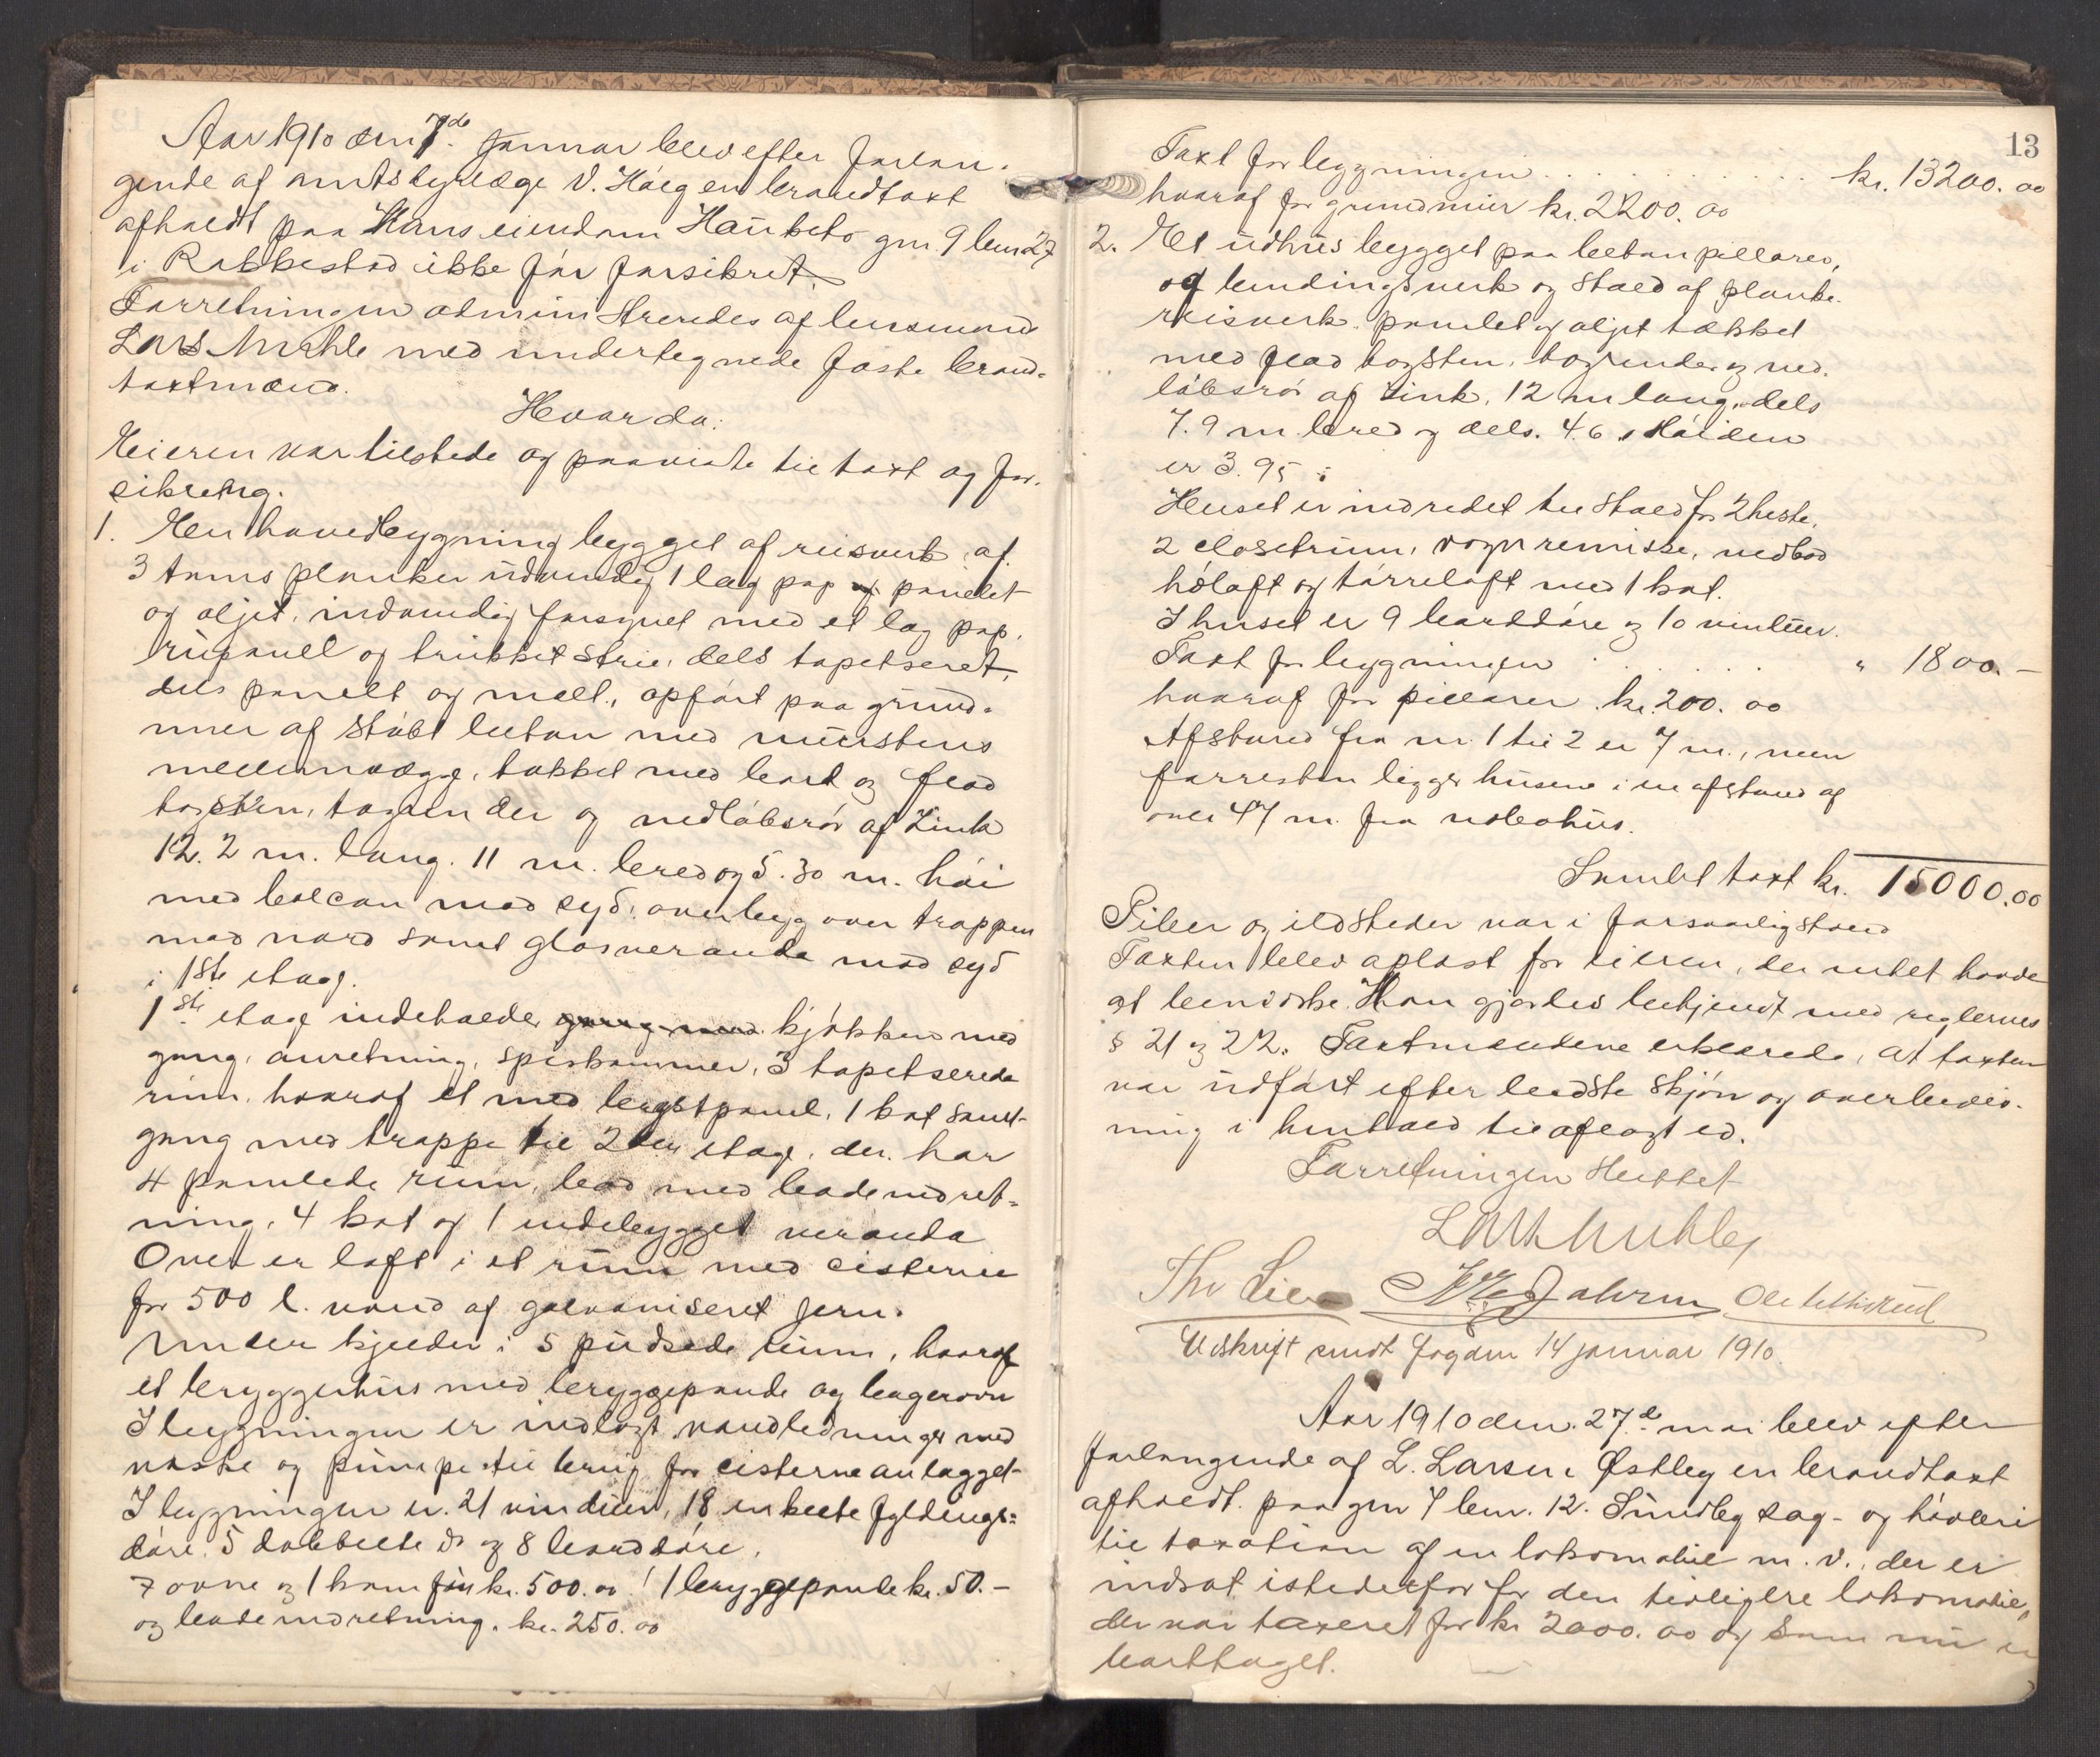 Aar 1910 den 7de januar blev efter forlan-
gende af amtsdyrlæge V. Høeg en brandtaxt
afholdt paa Hans eiendom Haubets gn. 9 bn. 27
i Rakkestad ikke før forsikret.
Forretningen administreredes af lensmand
Lars Mæhle med undertegnede faste brand-
taxtmænd.
Hvorda:
Eieren var tilstede og paaviste til taxt og for-
sikring.
1. En hovedbygning bygget af reisverk af
3 toms planker udvendig 1 lag pap og panelet
og oljet, indvendig forsynet med et lag pap,
rupanel og trukket strie, dels tapetseret,
dels panelt og malt, opført paa grund-
mur af støbt beton med murstens
mellemvægge, tækket med bord og flad
tagsten, tagrender og nedløbsrør af zink
12.2 m. lang. 11 m. bred og 5.30 m. høi
med balcon mod syd, overbyg over trappen
mod nord samt glasveranda mod syd
i 1ste etage.
1ste etage indeholder gang med kjøkken med
gang, anretning, spiskammer, 3 tapetserede
rum, hvoraf et med brystpanel, 1 kot samt
gang med trappe til 2den etage, der har
4 panelede rum, bad med badeindret-
ning, 4 kot og 1 indebygget veranda
Over er loft i et rum med cisterne
for 500 l. vand af galvaniseret jern.
Under kjelder i 5 pudsede rum, hvoraf
et bryggerhus med bryggepande og bagerovn
I bygningen er indlagt vandledninger med
vaske og pumpe til brug for cisterneanlægget
I bygningen er 21 vinduer, 18 enkelte fyldings-
døre, 5 dobbelte do og 8 borddøre.
7 ovne og 1 komfur kr. 500.00 1 bryggepande kr. 50.-
og badeindretning kr. 250.00
13
Taxt for bygningen . . . . . kr. 13200.00
hvoraf for grundmur kr. 2200.00
2. Et udhus bygget paa betonpillarer,
af bindingsverk og stald af planke-
reisverk, panelet og oljet tækket
med flad tagsten, tagrender og ned-
løbsrør af zink, 12 m lang, dels
7.9 m bred og dels 4.6, Høiden
er 3.95
Huset er indredet til stald for 2 heste,
2 closetrum, vognremisse, vedbod
høloft og tørreloft med 1 kot.
I huset er 9 borddøre og 10 vinduer.
Taxt for bygningen . . . . . " 1800.-
hvoraf for pillarer kr. 200.00
Afstand fra nr. 1 til 2 er 7 m., men
forresten ligger husene i en afstand af
over 47 m. fra nabohus.
Samlet taxt kr. 15000.00
Piber og ildsteder var i forsvarlig stand
Taxten blev oplæst for eieren, der intet havde
at bemærke. Han gjordes bekjendt med reglernes
§ 21 og 22. Taxtmændene erklærede, at taxten
var udført efter bedste skjøn og overbevis-
ning i henhold til aflagt ed.
Forretningen sluttet
Lars Mæhle
Thv Lie
Udskrift sendt fogden 14 januar 1910.
Aar 1910 den 27de mai blev efter
forlangende af L. Larsen Østby en brandtaxt
afholdt paa gn 7 bn. 12. Sundby sag- og høvleri
til taxation af en lokomobil m. v., der er
indsat istedetfor for den tidligere lokomobil,
der var taxeret for kr 2000.00 og som nu er
borttaget.